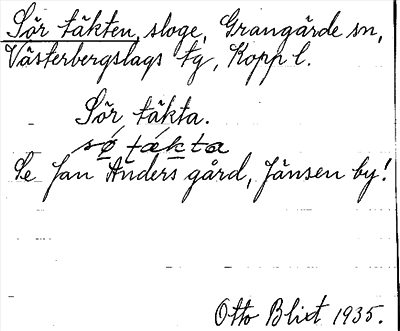 Sör täkten, sloge, Grangärde sn,
Västerbergslags tg, Kopp l.
Sör täkta.
sø̀ tækta
Se Jan Anders gård, Jänsen by!
Otto Blixt 1935.